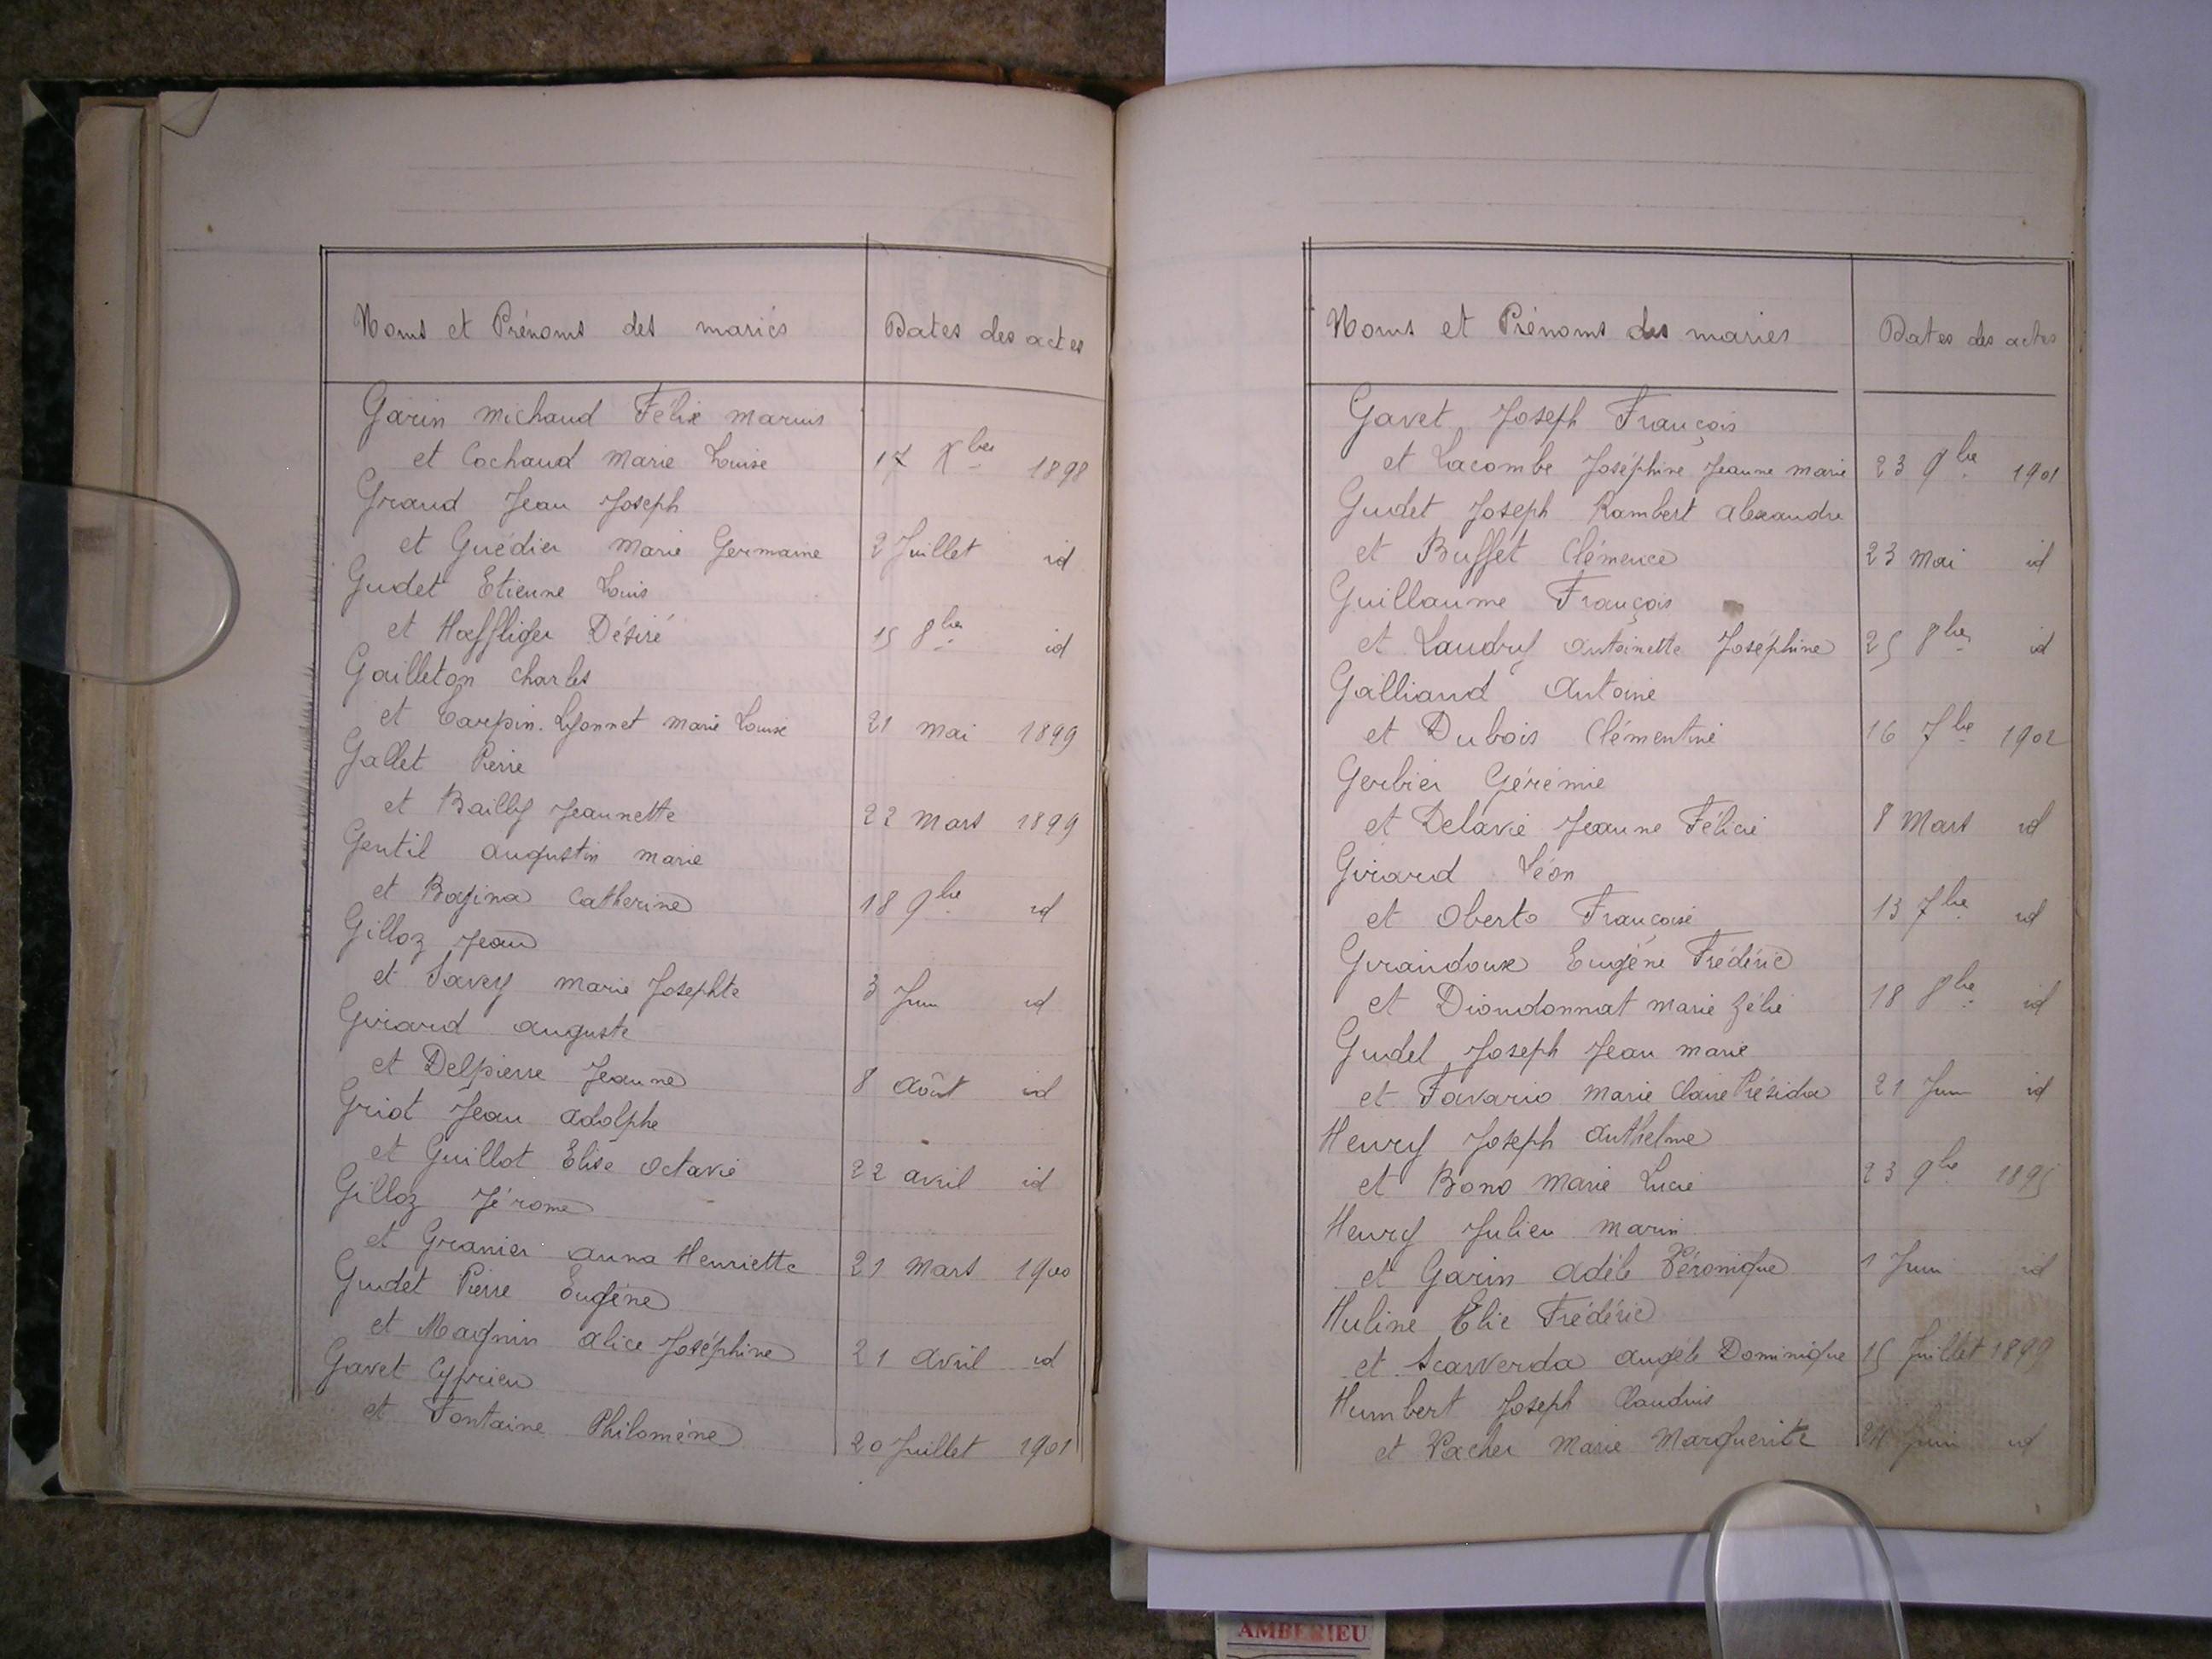 Noms et Prénoms des mariés Dates des actes
Garin Michaud Félix Marius
et Cochaud Marie Louise 17 Xbre 1898
Graud Jean Joseph
et Guédier Marie Germaine 2 Juillet id
Gudet Etienne Louis
et Hoeffliger Désiré 15 8bre id
Gailleton Charles
et Carpin-Lyonnet Marie Louise 21 Mai 1899
Gallet Pierre
et Bailly Jeannette 22 Mars 1899
Gentil Augustin Marie
et Bagina Catherine 18 9bre id
Gilloz Jean
et Savey Marie Josephte 3 Juin id
Girard Auguste
et Delpierre Jeanne 8 Août id
Griot Jean Adolphe
et Guillot Elise Octavie 22 avril id
Gilloz Jérome
et Granier Anna Henriette 21 Mars 1900
Gudet Pierre Eugène
et Magnin Alice Joséphine 21 Avril id
Gavet Cyprien
et Fontaine Philomène 20 Juillet 1901
Noms et Prénoms des mariés Dates des actes
Gavet Joseph François
et Lacombe Joséphine Jeanne Marie 23 9bre 1901
Gudet Joseph Rambert Alexandre
et Buffet Clémence 23 Mai id
Guillaume François
et Laudry Antoinette Joséphine 25 8bre id
Galliand Antoine
et Dubois Clémentine 16 7bre 1902
Gerbier Gérémie
et Delavie Jeanne Félicie 8 Mars id
Girard Léon
et Oberto Françoise 13 7bre id
Giraudoux Eugène Frédéric
et Dioudonnat Marie Zélie 18 8bre id
Gudel Joseph Jean Marie
et Favario Marie Claire Présida 21 Juin id
Henry Joseph Anthelme
et Bono Marie Lucie 23 9bre 1895
Henry Julien Marin
et Garin Adèle Véronique 1 Juin id
Huline Elie Frédéric
et Scavverda Angèle Dominique 15 Juillet 1899
Humbert Joseph Claudius
et Vacher Marie Marguerite 24 Juin id
AMBERIEU